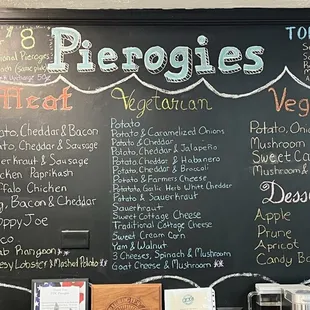 8
Pierogies
TO
Meat
Vegetarian
Veg
Potato, Cheddar & Bacon
Cheddar & Sausage
Sauerkraut & Sausage
Chicken Paprikash
Buffalo Chicken
Bacon & Cheddar
Sloppy Joe
Crab Rangoon
Cheesy Lobster & Mashed Potato
Potato
Potato & Caramelized Onions
Potato & Cheddar
Potato, Cheddar & Jalapeño
Potato, Cheddar & Habanero
Potato, Cheddar & Broccoli
Potato & Farmers Cheese
Potato, Garlic Herb White Cheddar
Potato & Sauerkraut
Sauerkraut
Sweet Cottage Cheese
Traditional Cottage Cheese
Sweet Corn
Yam & Walnut
3 Cheeses, Spinach & Mushroom
Goat Cheese & Mushroom
Potato, Onio
Mushroom
Sweet Ca
Potato,
Mushroom &
Desse
Apple
Prune
Apricot
Candy Ba